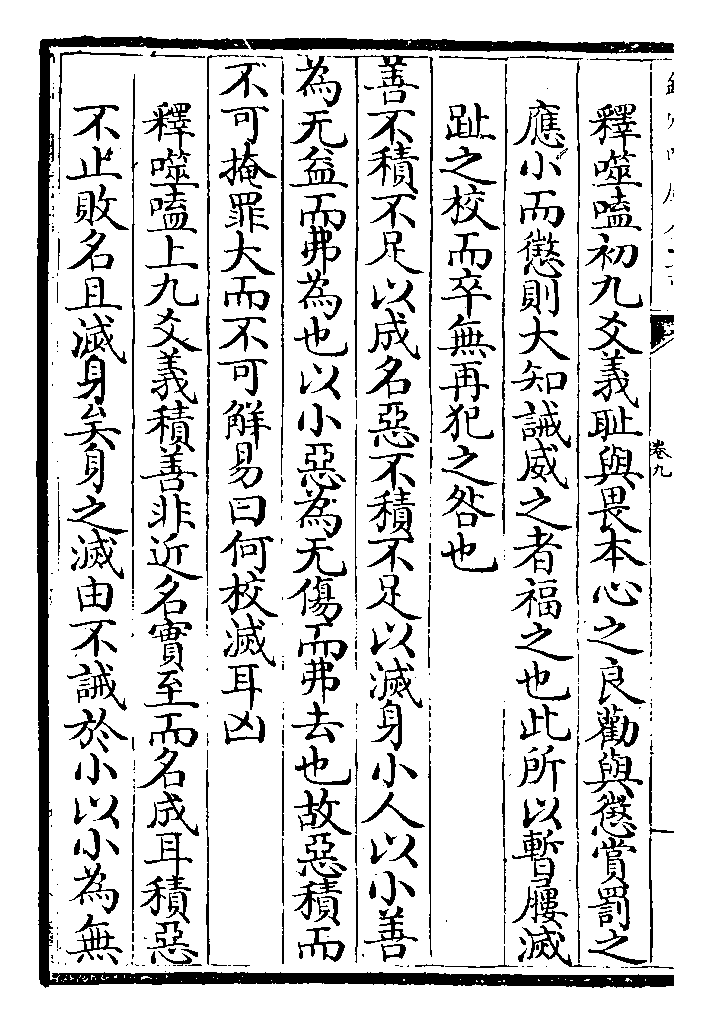 卷九
釋噬嗑初九爻義耻與畏本心之良勸與懲賞罰之
應小而懲則大知誡威之者福之也此所以暫屨滅
趾之校而卒無再犯之咎也
善不積不足以成名惡不積不足以滅身小人以小善
為无益而弗為也以小惡為无傷而弗去也故惡積而
不可掩罪大而不可解易曰何校滅耳凶
釋噬嗑上九爻義積善非近名實至而名成耳積惡
不止敗名且滅身矣身之滅由不誡於小以小為無